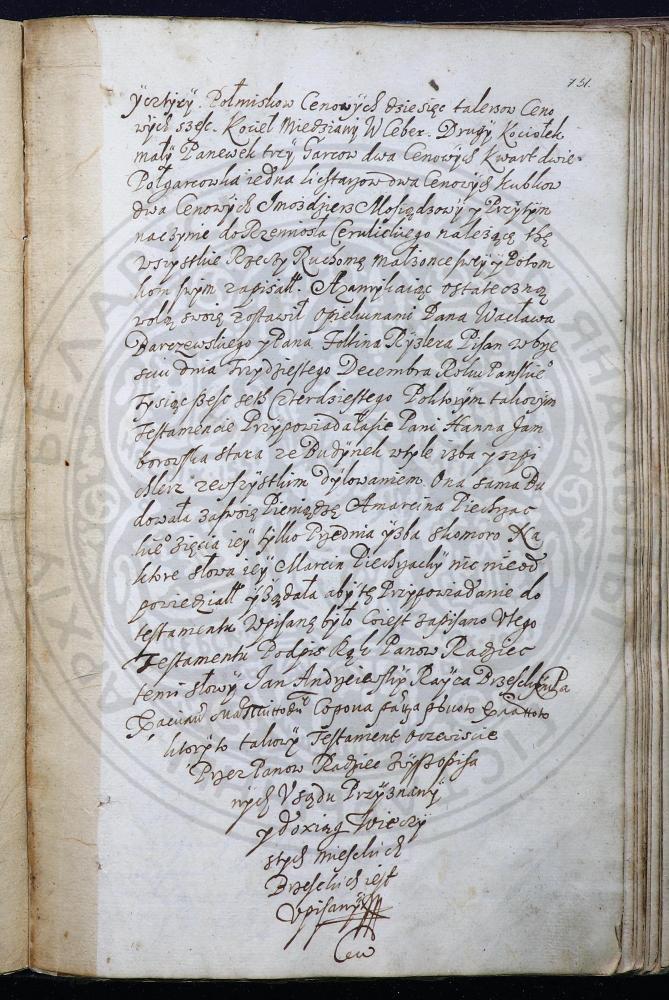 751.
y cztyry. Połmiskow Cenowych dziesięc talerzow Ceno
wych szesc. Kocieł Miedziany W Ceber. Drugy Kociołek
mały Panewek trzy Garcow dwa Cenowych Kwart dwie
Połgarcowka iedna lichtarzow dwa Cenowych kubkow
dwa Cenowych Imozdzierz Mosiądzowy y Przytym
naczynie do Rzemiosła Cerulickiego należące the
wszystkie Rzeczy Ruchome małżonce swey y Potom
kom swym zapisall. A zamykaiąc ostateczną
wolą swoię zostawił opiekunami Pana Wacława
Barczewskiego y Pana Foltina Ryzlera Pisan w Brze
sciu dnia Trzydziestego Decembra Roku Panskieo
Tysiąc szesc seth czterdziestego Poktorym takowym
Testamencie Przypowiadałasie Pani Hanna Jan
borowska stara ze Budynek wtyle izba y szpi
chlerz zewszystkim dyłowaniem. Ona sama Bu
dowała zaswoie Pieniądze Amarcina Piechac
kieo zięcia iey tylko Przednia yzba skomoro Na
ktore słowa iey Marcin Piechacky nic nieod
powiedziall y żądała aby tę Przypowiadanie do
testamentu Wpisane było Coiest zapisano Utego
Testamentu Podpis Rąk Panow Radziec
temi słowy Jan Andrzeiewsky Rayca Brzesky
рукою власною
ktory to takowy Testament oczewiscie
Przez Panow Radziec zwysz opisa
nych Urzędu Przyznany
y do xiąg Wieczy
stych mieskich
Brzeskich iest
Wpisany